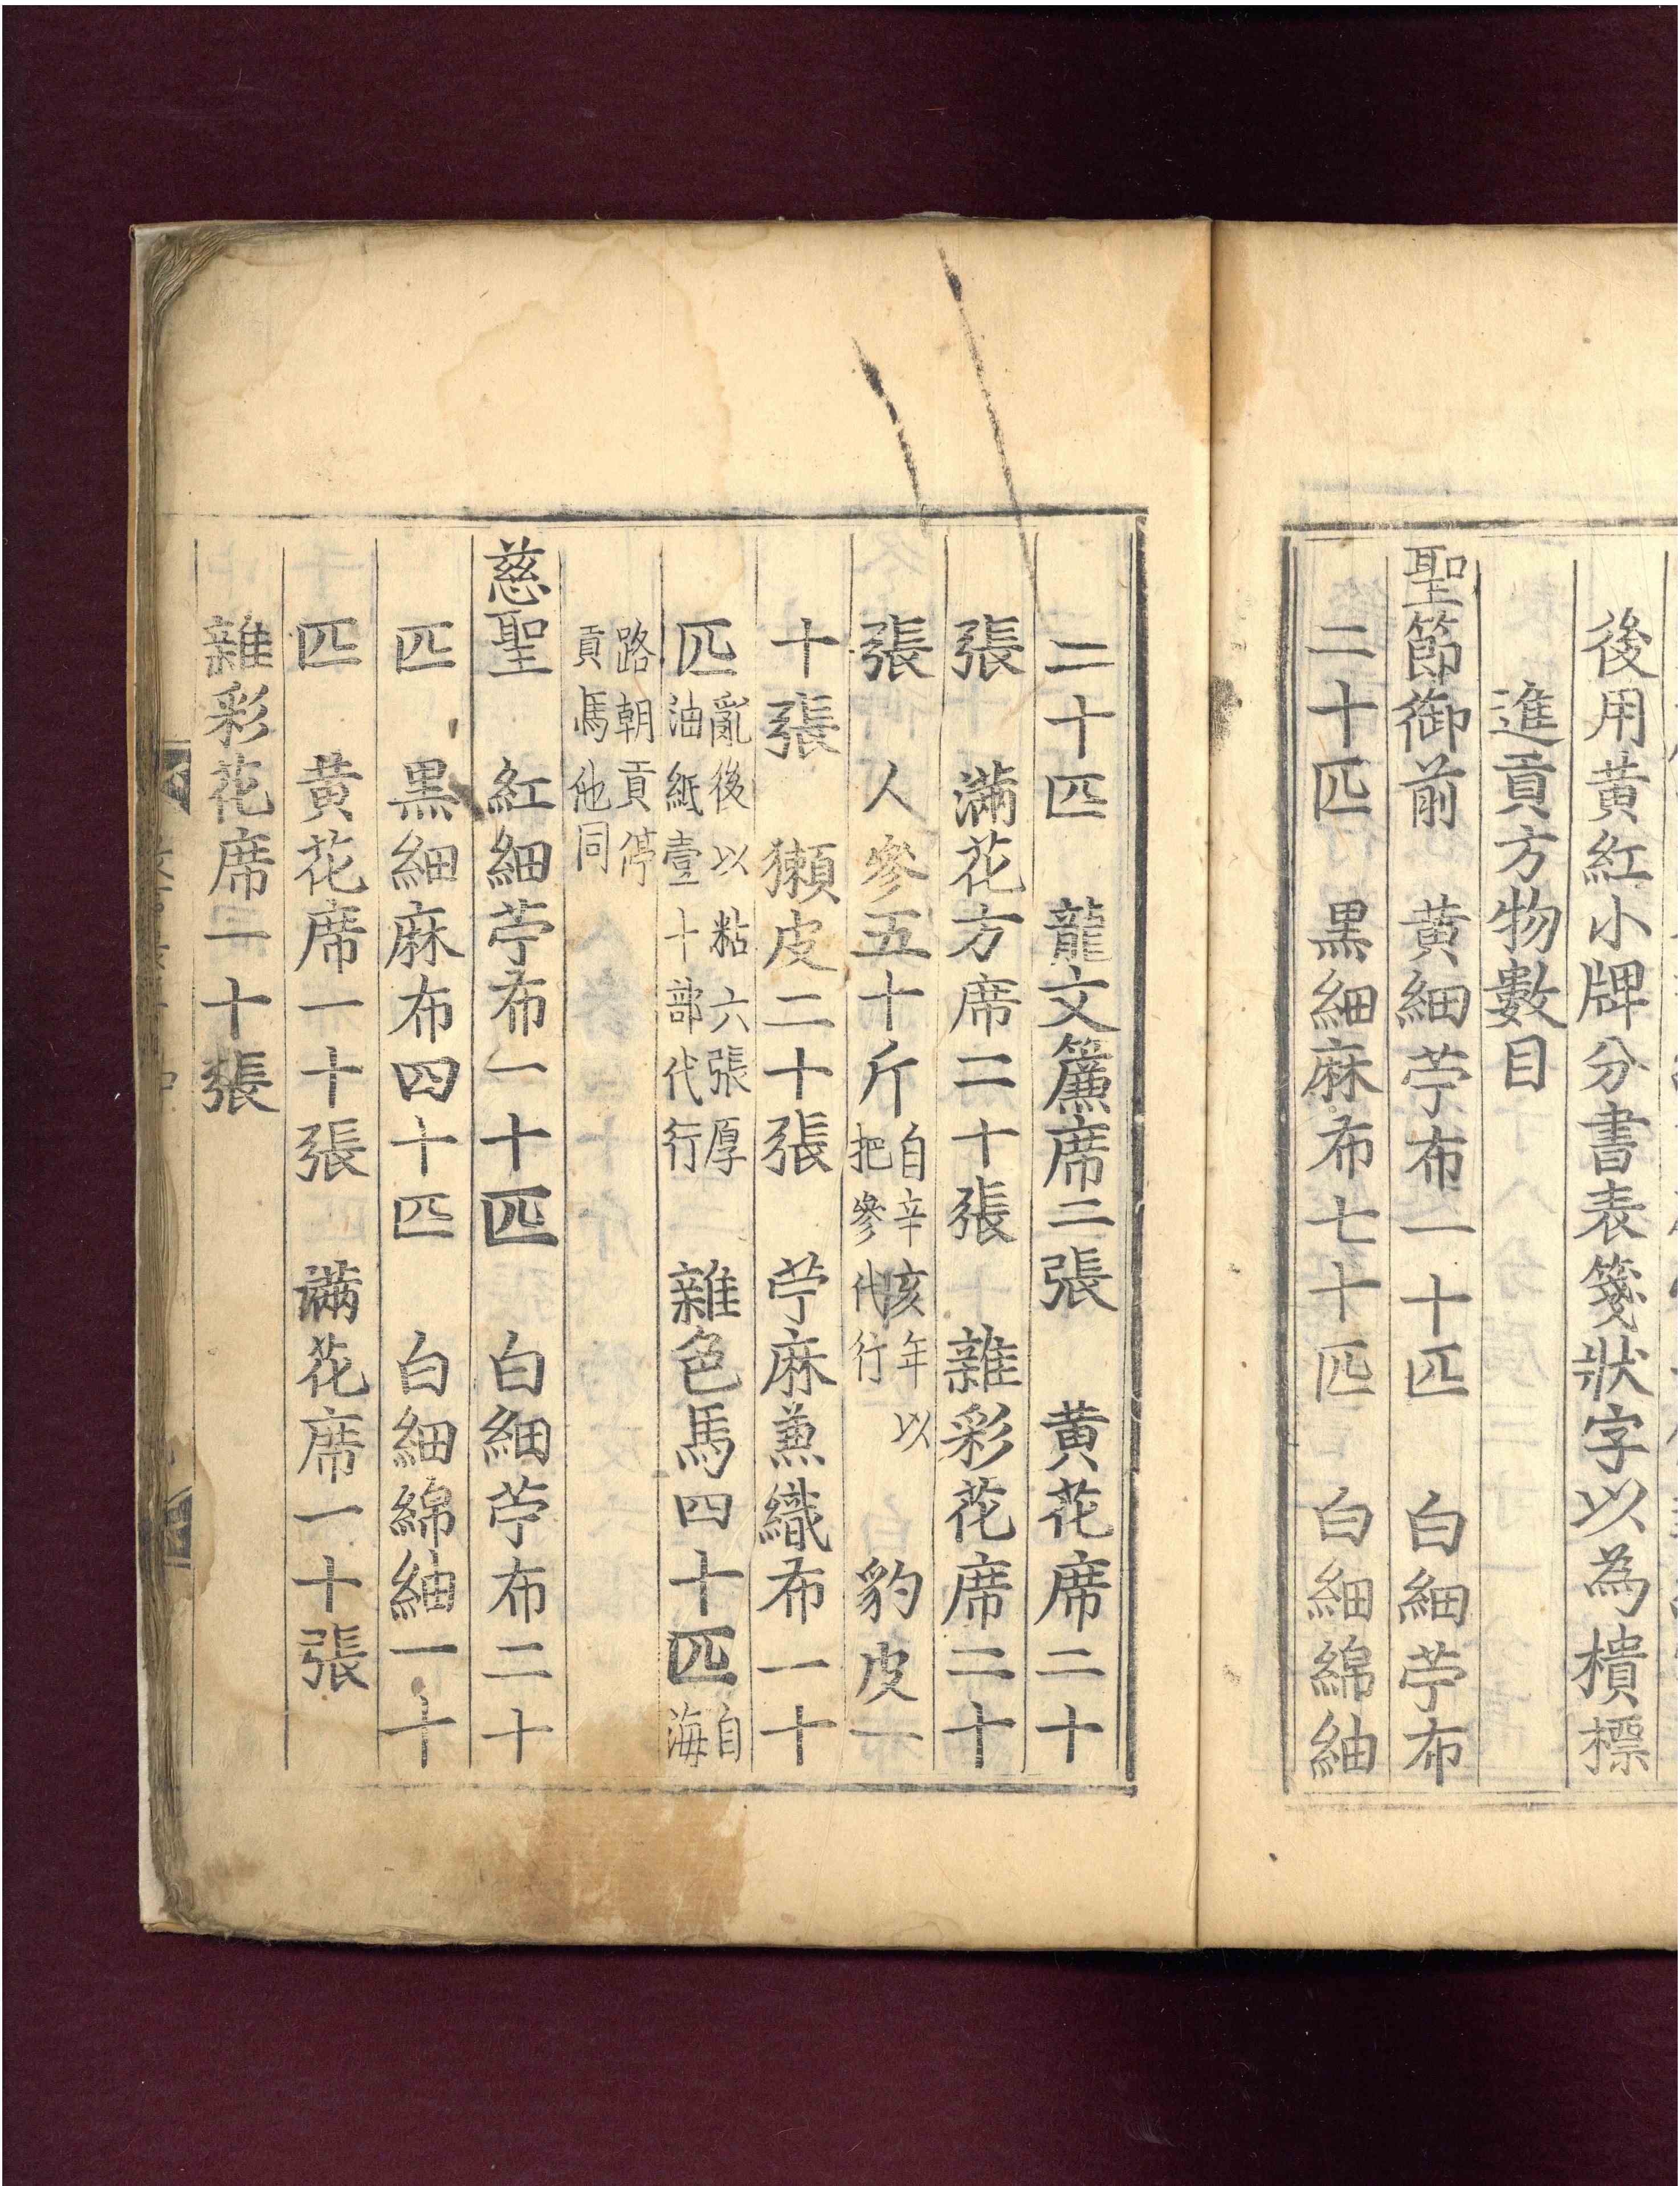 後用黄紅小牌分書表箋狀字以為樻標
進貢方物數目
聖節御前　黄細苧布一十匹　白細苧布
二十匹　黒細麻布七十匹　白細綿紬
二十匹　龍文簾席二張　黄花席二十
張　滿花方席二十張　雜彩花席二十
張　人參五十斤自辛亥年以把參代行　豹皮一
十張　獺皮二十張　苧麻兼織布一十
匹亂後以粘六張厚油紙壹十部代行　雜色馬四十匹自海
路朝貢停貢馬他同
慈聖　紅細苧布一十匹　白細苧布二十
匹　黒細麻布四十匹　白細綿紬一十
匹　黄花席一十張　滿花席一十張
雜彩花席一十張